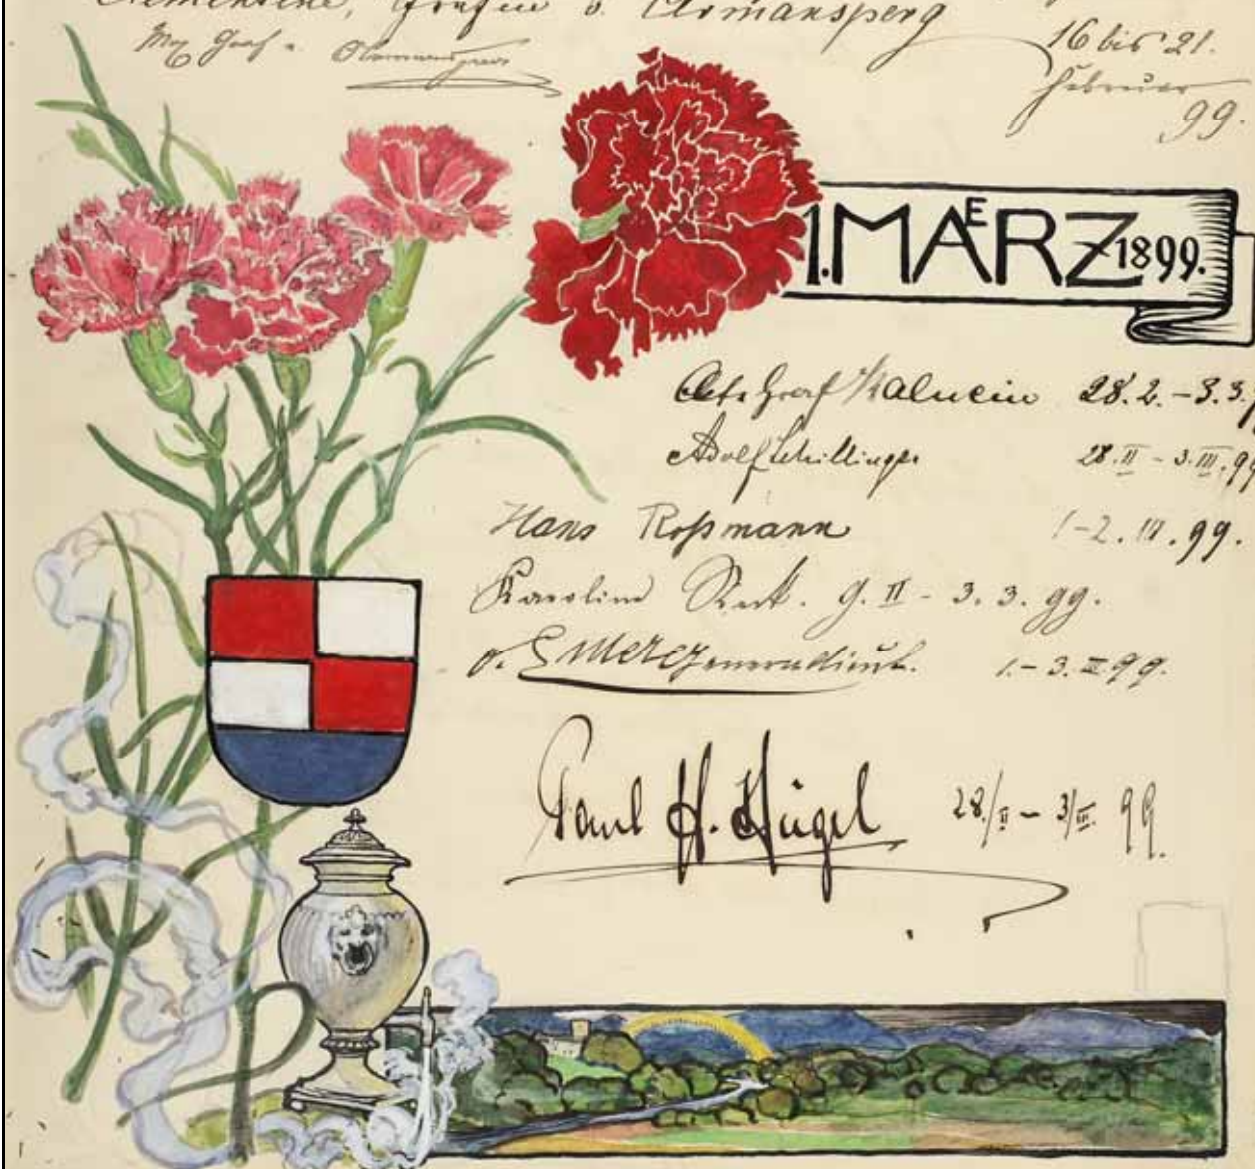 Clementine, Gräfin v. Armansperg
16 bis 21.
Februar
99.
1. MAERZ 1899.
Graf Kalnein 28.2. – 3.3.
Adolf Schillinger 28.II – 3.III.99
Hans Roßmann 1–2.III.99.
Karoline 9. II – 3. 3. 99.
1. – 3. III 99.
Paul H. Hügel 28/II – 3/III. 99.